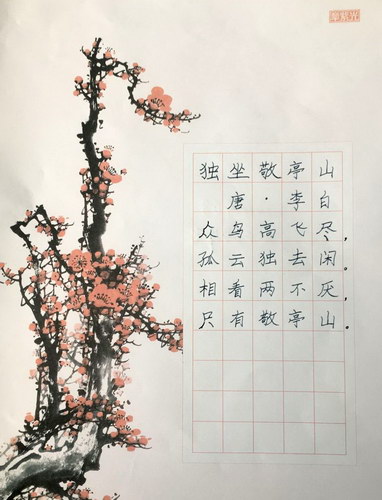 独坐敬亭山
唐·李白
众鸟高飞尽，
孤云独去闲。
相看两不厌，
只有敬亭山。